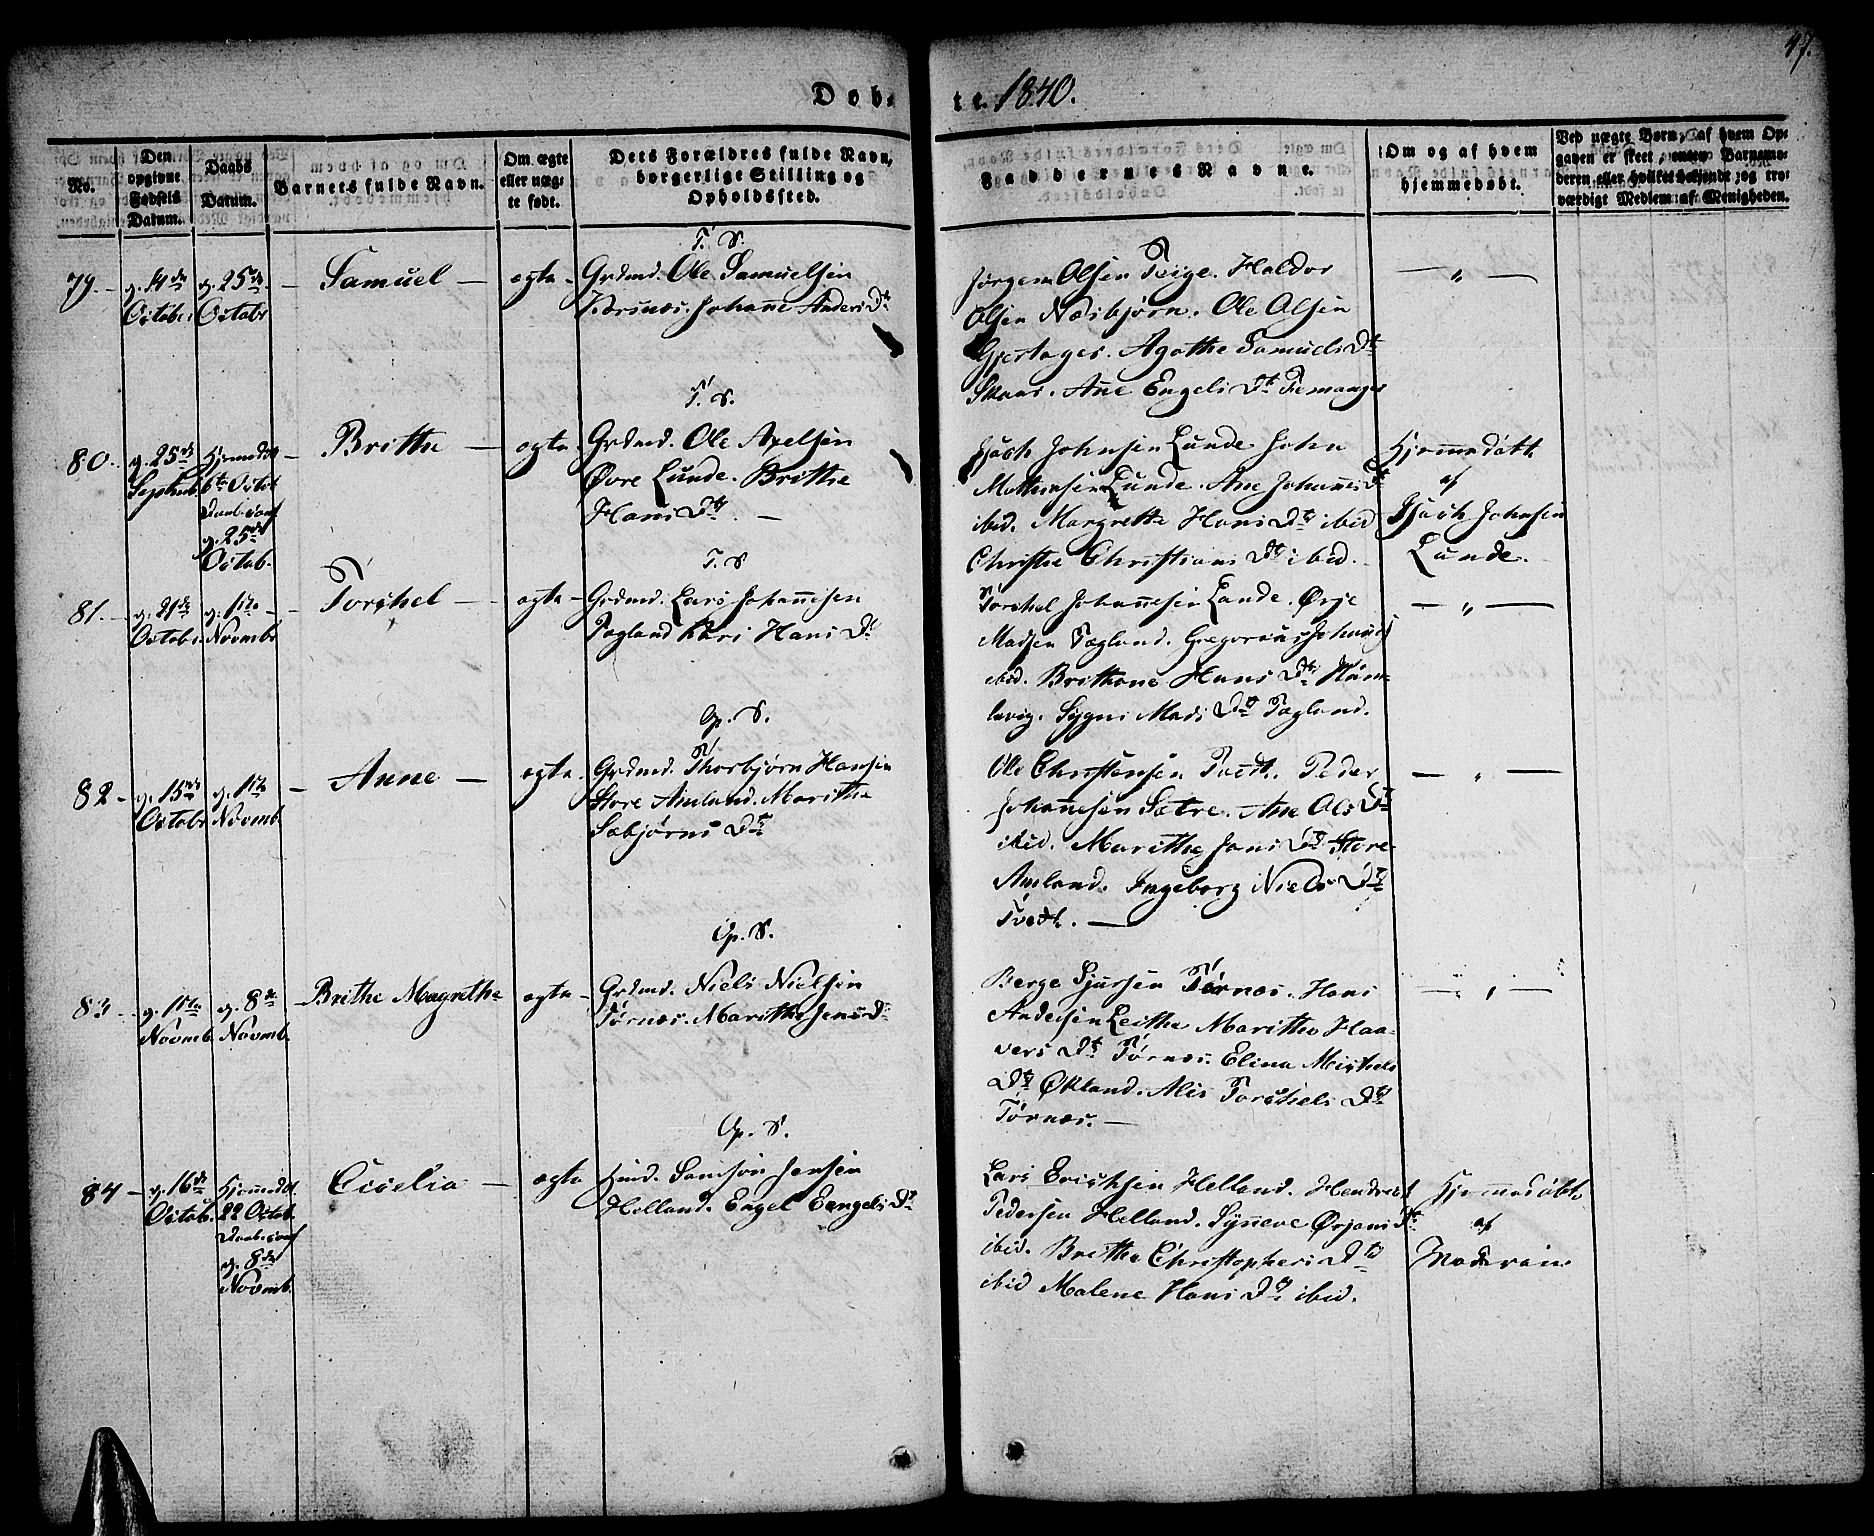 47.
Døbte 1840.
No.
Den opgivne Fødsels Datum.
Daabs Datum.
Barnets fulde Navn.
Om ægte eller uægte født.
Dets Forældres fulde Navn, borgerlige Stilling og Opholdssted.
Faddernes Navne.
Om og af hvem hjemmedøbt.
Ved uægte Børn, af hvem Opgaven er skeet, enten Barnemoderen eller hvilket bekjendt og troværdigt Medlem af Menigheden.
T. S.
79. d. 14de October d. 25de Octobr Samuel ægte Grdmd. Ole Samuelsen
Johanne Anders Dt
Jørgen Olsen Teige. Haldor
Olsen Næsbjørn. Ole Olsen
Gjerstages. Agathe Samuels Dt
Skaar. Ane Engels Dt Femanger
T. S.
80. d. 25de Septemb. Hjemmedøbt 6te Octob. Daab. conf. d. 25de Octob. Brithe ægte Grdmd. Ole Axelsen
Øvre Lunde. Brithe
Hans Dtr. —
Johnsen Lunde. John
Mathiasen Lunde. Ane Johannes Dt
ibid. Margrethe Hans Dtr ibid
Christhe Christians Dtr ibid.
Hjemmedøbt
af
Johnsen
Lunde.
T. S
81. d. 21de Octobr. d. 1ste Novembr Torchel ægte Grdmd. Lars Johannesen
Tagland Kari Hans Dt
Torchel Johannesen Lande. Ørje
Madsen Tagland. Gregorius Johannes
ibid. Brithane Hans Dtr
Sygni Mads Dtr Tagland.
Op. S.
82 d. 15de Octobr d. 1ste Novemb. Anne ægte Grdmd. Thorbjørn Hansen
Store Amland. Marithe
Sæbjørns Dtr
Ole Christensen Tvedt. Peder
Johannesen Sætre. Ane Ols Dtr
ibid. Marithe Jans Dtr Store
Amland. Ingeborg Niels Dtr
Tvedt. —
Op. S.
83 d. 1ste Novmb. d. 8de Novmb. Brithe Magrethe ægte Grdmd. Niels Nielsen
Tørnes. Marithe Jens D.
Berge Sjursen Tørnes. Hans
Andersen Leithe Marithe Haavers Dt
Tørnes. Elina Michels
Dtr Økland. Alis Torchels Dtr
Tørnæs. —
Op. S.
84 d. 16de Octob. Hjemmedøbt 22 Octob. Daab. conf. d. 8de Novmb. Cicelia ægte Hmd. Samson Jensen
Helland. Engel Engels Dt
Lars Erichsen Helland. Hendrich
Pedersen Helland. Synneve Ørjans Dt
ibid. Brithe Christophers Dtr
ibid Malene Hans Dtr ibid.
Hjemmedøbt
af
Moderen